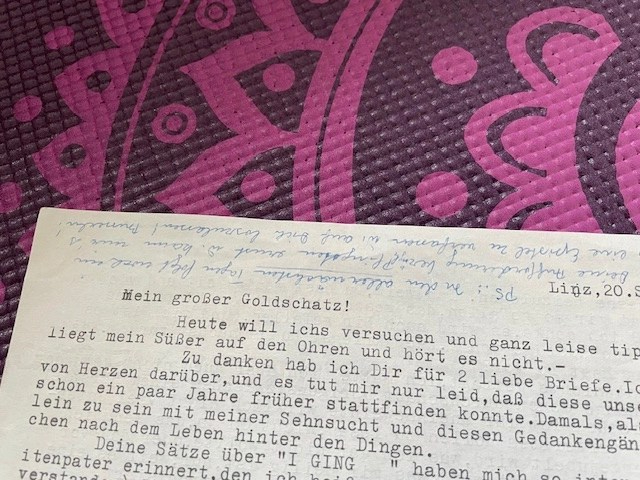 PS.: In den allernächsten Tagen
Deine Aufforderung ernst u. kann
eine Epistel zu verfassen u. auf Dich loszulassen! Busseln!
Linz,20.S
Mein großer Goldschatz!
Heute will ichs versuchen und ganz leise tip
liegt mein Süßer auf den Ohren und hört es nicht.-
Zu danken hab ich Dir für 2 liebe Briefe.Ic
von Herzen darüber,und es tut mir nur leid,daß diese uns
schon ein paar Jahre früher stattfinden konnte.Damals,al
lein zu sein mit meiner Sehnsucht und diesen Gedankengän
chen nach dem Leben hinter den Dingen.
Deine Sätze über "I GING " haben mich so inte
itenpater erinnert,den ich